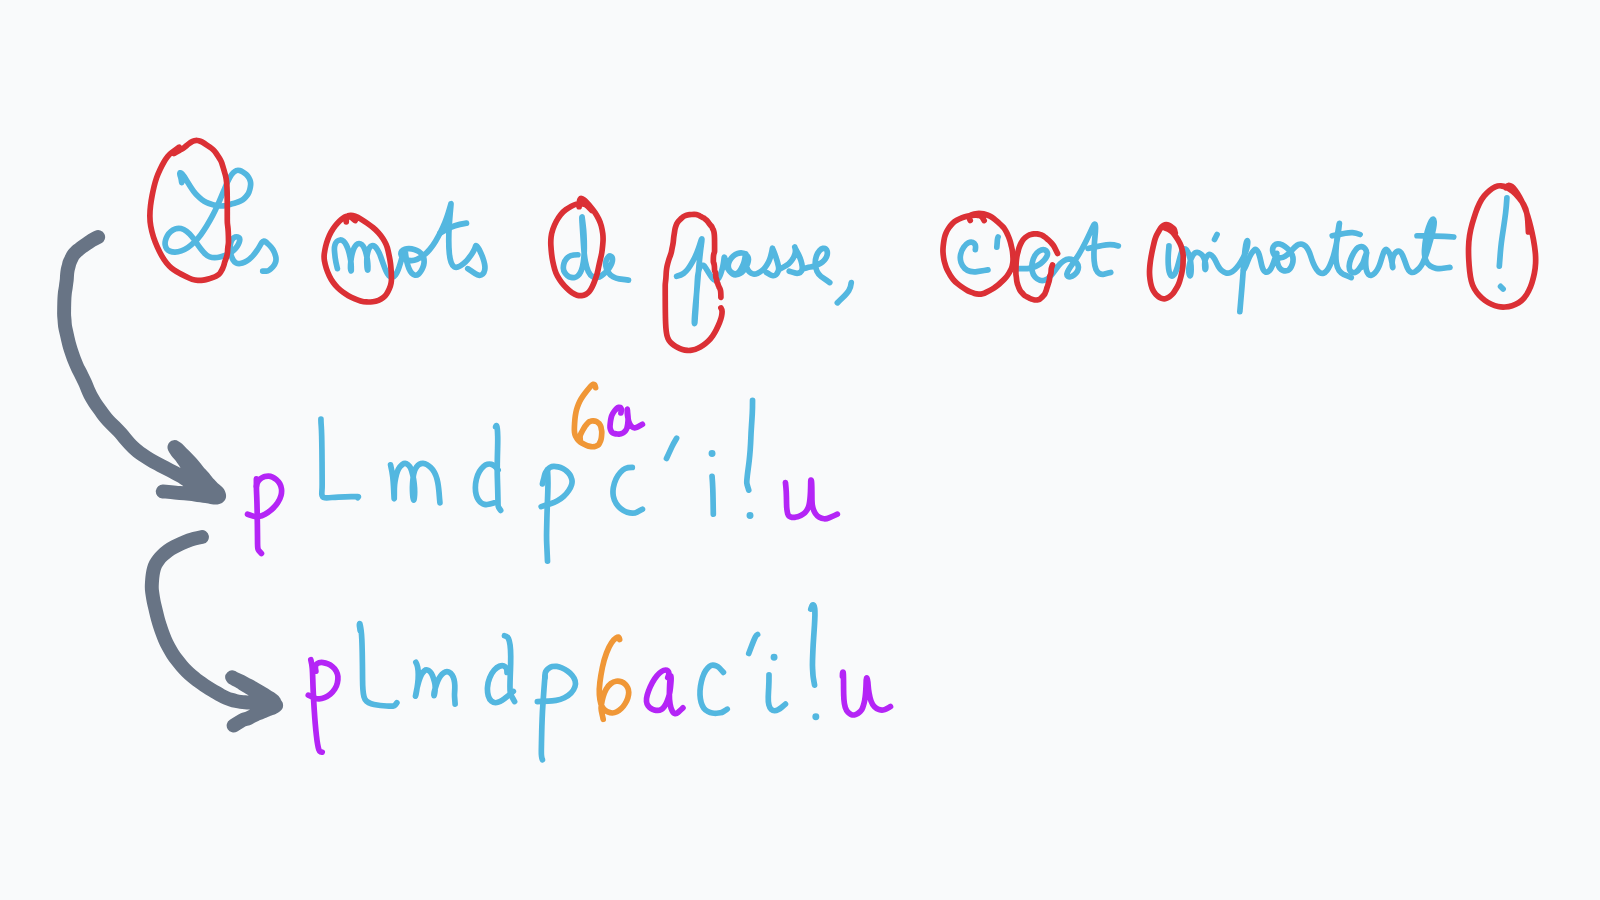 Les mots de passe, c'est important !
pLmdp6ac'i!u
pLmdp6ac'i!u